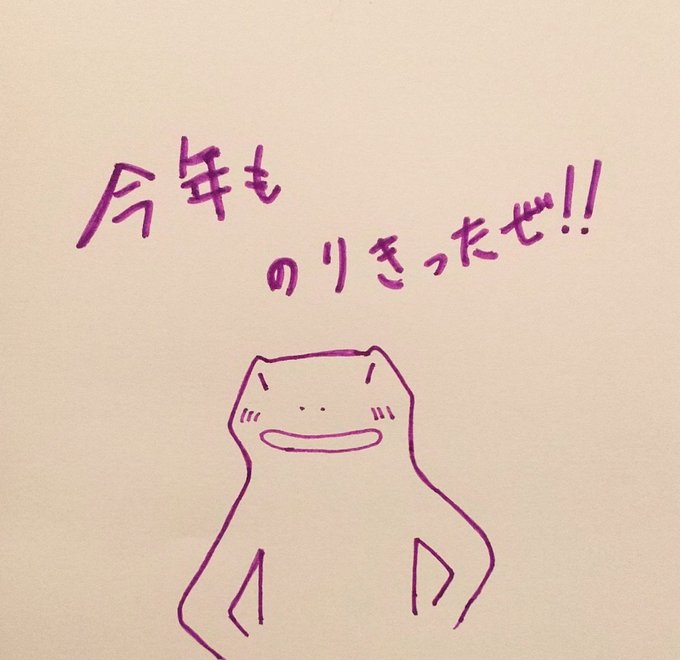 今年も
のりきったぜ!!